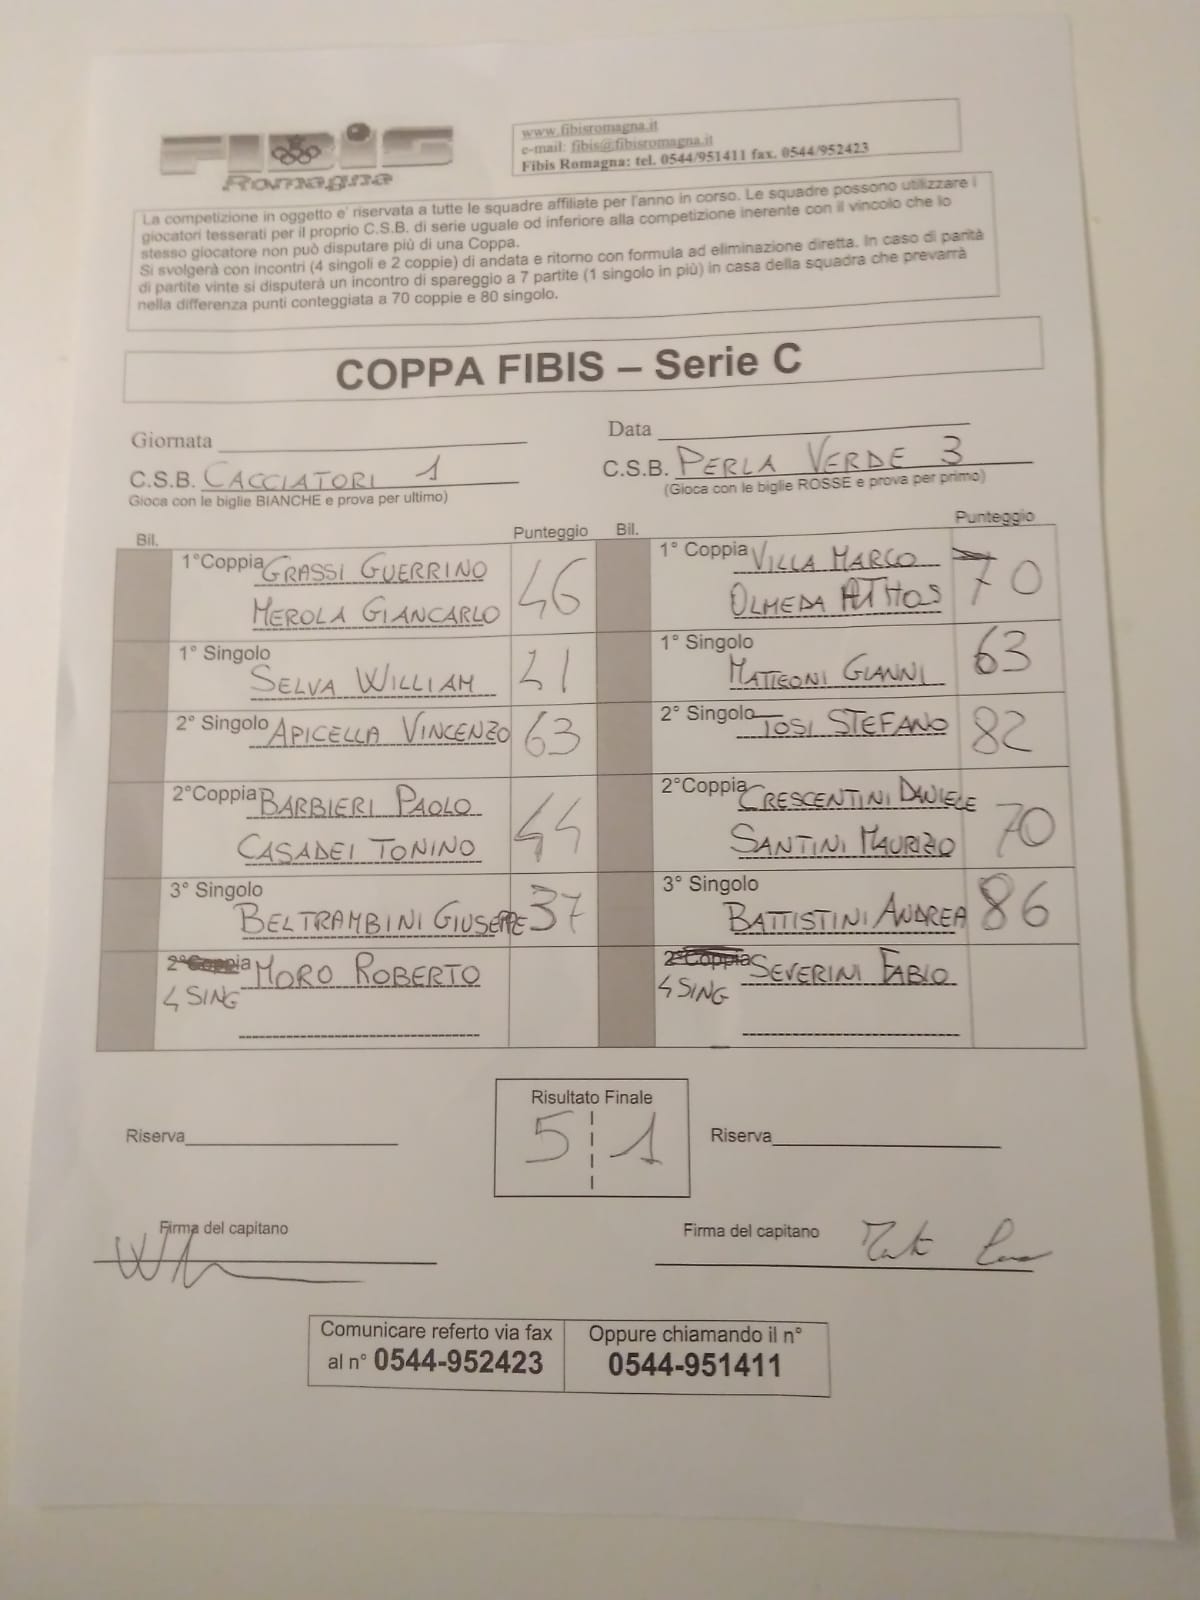 FIBiS
Romagna
www.fibisromagna.it
e-mail: fibis@fibisromagna.it
Fibis Romagna: tel. 0544/951411 fax. 0544/952423
La competizione in oggetto e' riservata a tutte le squadre affiliate per l'anno in corso. Le squadre possono utilizzare i
giocatori tesserati per il proprio C.S.B. di serie uguale od inferiore alla competizione inerente con il vincolo che lo
stesso giocatore non può disputare più di una Coppa.
Si svolgerà con incontri (4 singoli e 2 coppie) di andata e ritorno con formula ad eliminazione diretta. In caso di parità
di partite vinte si disputerà un incontro di spareggio a 7 partite (1 singolo in più) in casa della squadra che prevarrà
nella differenza punti conteggiata a 70 coppie e 80 singolo.
COPPA FIBIS – Serie C
Giornata Data
C.S.B. CACCIATORI 1 C.S.B. PERLA VERDE 3
Gioca con le biglie BIANCHE e prova per ultimo) (Gioca con le biglie ROSSE e prova per primo)
Bil. Punteggio Bil. Punteggio
1°Coppia GRASSI GUERRINO 46 1° Coppia VILLA MARCO 70
MEROLA GIANCARLO OLMEDA ATHOS
1° Singolo 1° Singolo
SELVA WILLIAM MATTEONI GIANNI 63
2° Singolo APICELLA VINCENZO 63 2° Singolo TOSI STEFANO 82
2°Coppia BARBIERI PAOLO 44 2°Coppia CRESCENTINI DANIELE 70
CASADEI TONINO SANTINI MAURIZIO
3° Singolo 3° Singolo
BELTRAMBINI GIUSEPPE 37 BATTISTINI ANDREA 86
2°Coppia MORO ROBERTO 2°Coppia SEVERINI FABIO
4 SING 4 SING
Risultato Finale
Riserva 5 1 Riserva
Firma del capitano Firma del capitano
Comunicare referto via fax Oppure chiamando il n°
al n° 0544-952423 0544-951411